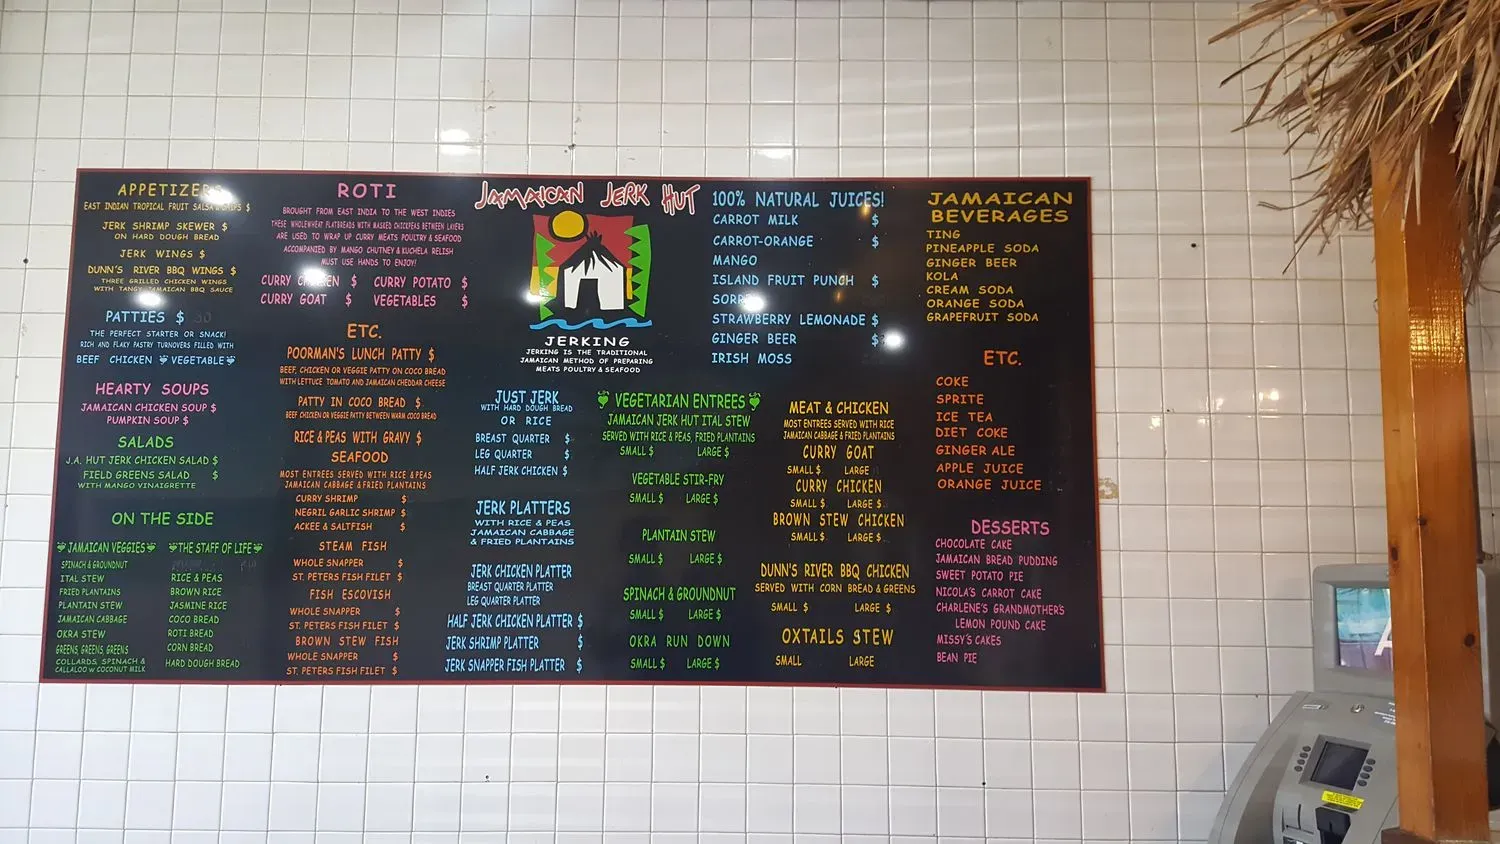 APPETIZERS
EAST INDIAN TROPICAL FRUIT SALSA & CHIPS $
JERK SHRIMP SKEWER $
ON HARD DOUGH BREAD
JERK WINGS $
DUNN'S RIVER BBQ WINGS $
THREE GRILLED CHICKEN WINGS
WITH TANGY JAMAICAN BBQ SAUCE
PATTIES $
THE PERFECT STARTER OR SNACK!
RICH AND FLAKY PASTRY TURNOVERS FILLED WITH
BEEF CHICKEN VEGETABLE
HEARTY SOUPS
JAMAICAN CHICKEN SOUP $
PUMPKIN SOUP $
SALADS
J.A. HUT JERK CHICKEN SALAD $
FIELD GREENS SALAD $
WITH MANGO VINAIGRETTE
ON THE SIDE
JAMAICAN VEGGIES
SPINACH & GROUNDNUT
ITAL STEW
FRIED PLANTAINS
PLANTAIN STEW
JAMAICAN CABBAGE
OKRA STEW
GREENS, GREENS, GREENS
COLLARDS, SPINACH &
CALLALOO W COCONUT MILK
THE STAFF OF LIFE
RICE & PEAS
BROWN RICE
JASMINE RICE
COCO BREAD
ROTI BREAD
CORN BREAD
HARD DOUGH BREAD
ROTI
BROUGHT FROM EAST INDIA TO THE WEST INDIES
THESE WHOLEWHEAT FLATBREADS WITH MASHED CHICKPEAS BETWEEN LAYERS
ARE USED TO WRAP UP CURRY MEATS POULTRY & SEAFOOD
ACCOMPANIED BY MANGO CHUTNEY & KUCHELA RELISH
MUST USE HANDS TO ENJOY!
CURRY CHICKEN $ CURRY POTATO $
CURRY GOAT $ VEGETABLES $
ETC.
POORMAN'S LUNCH PATTY $
BEEF, CHICKEN OR VEGGIE PATTY ON COCO BREAD
WITH LETTUCE TOMATO AND JAMAICAN CHEDDAR CHEESE
PATTY IN COCO BREAD $
BEEF CHICKEN OR VEGGIE PATTY BETWEEN WARM COCO BREAD
RICE & PEAS WITH GRAVY $
SEAFOOD
MOST ENTREES SERVED WITH RICE & PEAS
JAMAICAN CABBAGE & FRIED PLANTAINS
CURRY SHRIMP $
NEGRIL GARLIC SHRIMP $
ACKEE & SALTFISH $
STEAM FISH
WHOLE SNAPPER $
ST. PETERS FISH FILET $
FISH ESCOVISH
WHOLE SNAPPER $
ST. PETERS FISH FILET $
BROWN STEW FISH
WHOLE SNAPPER $
ST. PETERS FISH FILET $
JAMAICAN JERK HUT
JERKING
JERKING IS THE TRADITIONAL
JAMAICAN METHOD OF PREPARING
MEATS POULTRY & SEAFOOD
JUST JERK
WITH HARD DOUGH BREAD
OR RICE
BREAST QUARTER $
LEG QUARTER $
HALF JERK CHICKEN $
JERK PLATTERS
WITH RICE & PEAS
JAMAICAN CABBAGE
& FRIED PLANTAINS
JERK CHICKEN PLATTER
BREAST QUARTER PLATTER
LEG QUARTER PLATTER
HALF JERK CHICKEN PLATTER $
JERK SHRIMP PLATTER $
JERK SNAPPER FISH PLATTER $
VEGETARIAN ENTREES
JAMAICAN JERK HUT ITAL STEW
SERVED WITH RICE & PEAS, FRIED PLANTAINS
SMALL $ LARGE $
VEGETABLE STIR-FRY
SMALL $ LARGE $
PLANTAIN STEW
SMALL $ LARGE $
SPINACH & GROUNDNUT
SMALL $ LARGE $
OKRA RUN DOWN
SMALL $ LARGE $
100% NATURAL JUICES!
CARROT MILK $
CARROT-ORANGE $
MANGO
ISLAND FRUIT PUNCH $
STRAWBERRY LEMONADE $
GINGER BEER $
IRISH MOSS
MEAT & CHICKEN
MOST ENTREES SERVED WITH RICE
JAMAICAN CABBAGE & FRIED PLANTAINS
CURRY GOAT
SMALL $ LARGE
CURRY CHICKEN
SMALL $ LARGE $
BROWN STEW CHICKEN
SMALL $ LARGE $
DUNN'S RIVER BBQ CHICKEN
SERVED WITH CORN BREAD & GREENS
SMALL $ LARGE $
OXTAILS STEW
SMALL LARGE
JAMAICAN
BEVERAGES
TING
PINEAPPLE SODA
GINGER BEER
KOLA
CREAM SODA
ORANGE SODA
GRAPEFRUIT SODA
ETC.
COKE
SPRITE
ICE TEA
DIET COKE
GINGER ALE
APPLE JUICE
ORANGE JUICE
DESSERTS
CHOCOLATE CAKE
JAMAICAN BREAD PUDDING
SWEET POTATO PIE
NICOLA'S CARROT CAKE
CHARLENE'S GRANDMOTHER'S
LEMON POUND CAKE
MISSY'S CAKES
BEAN PIE